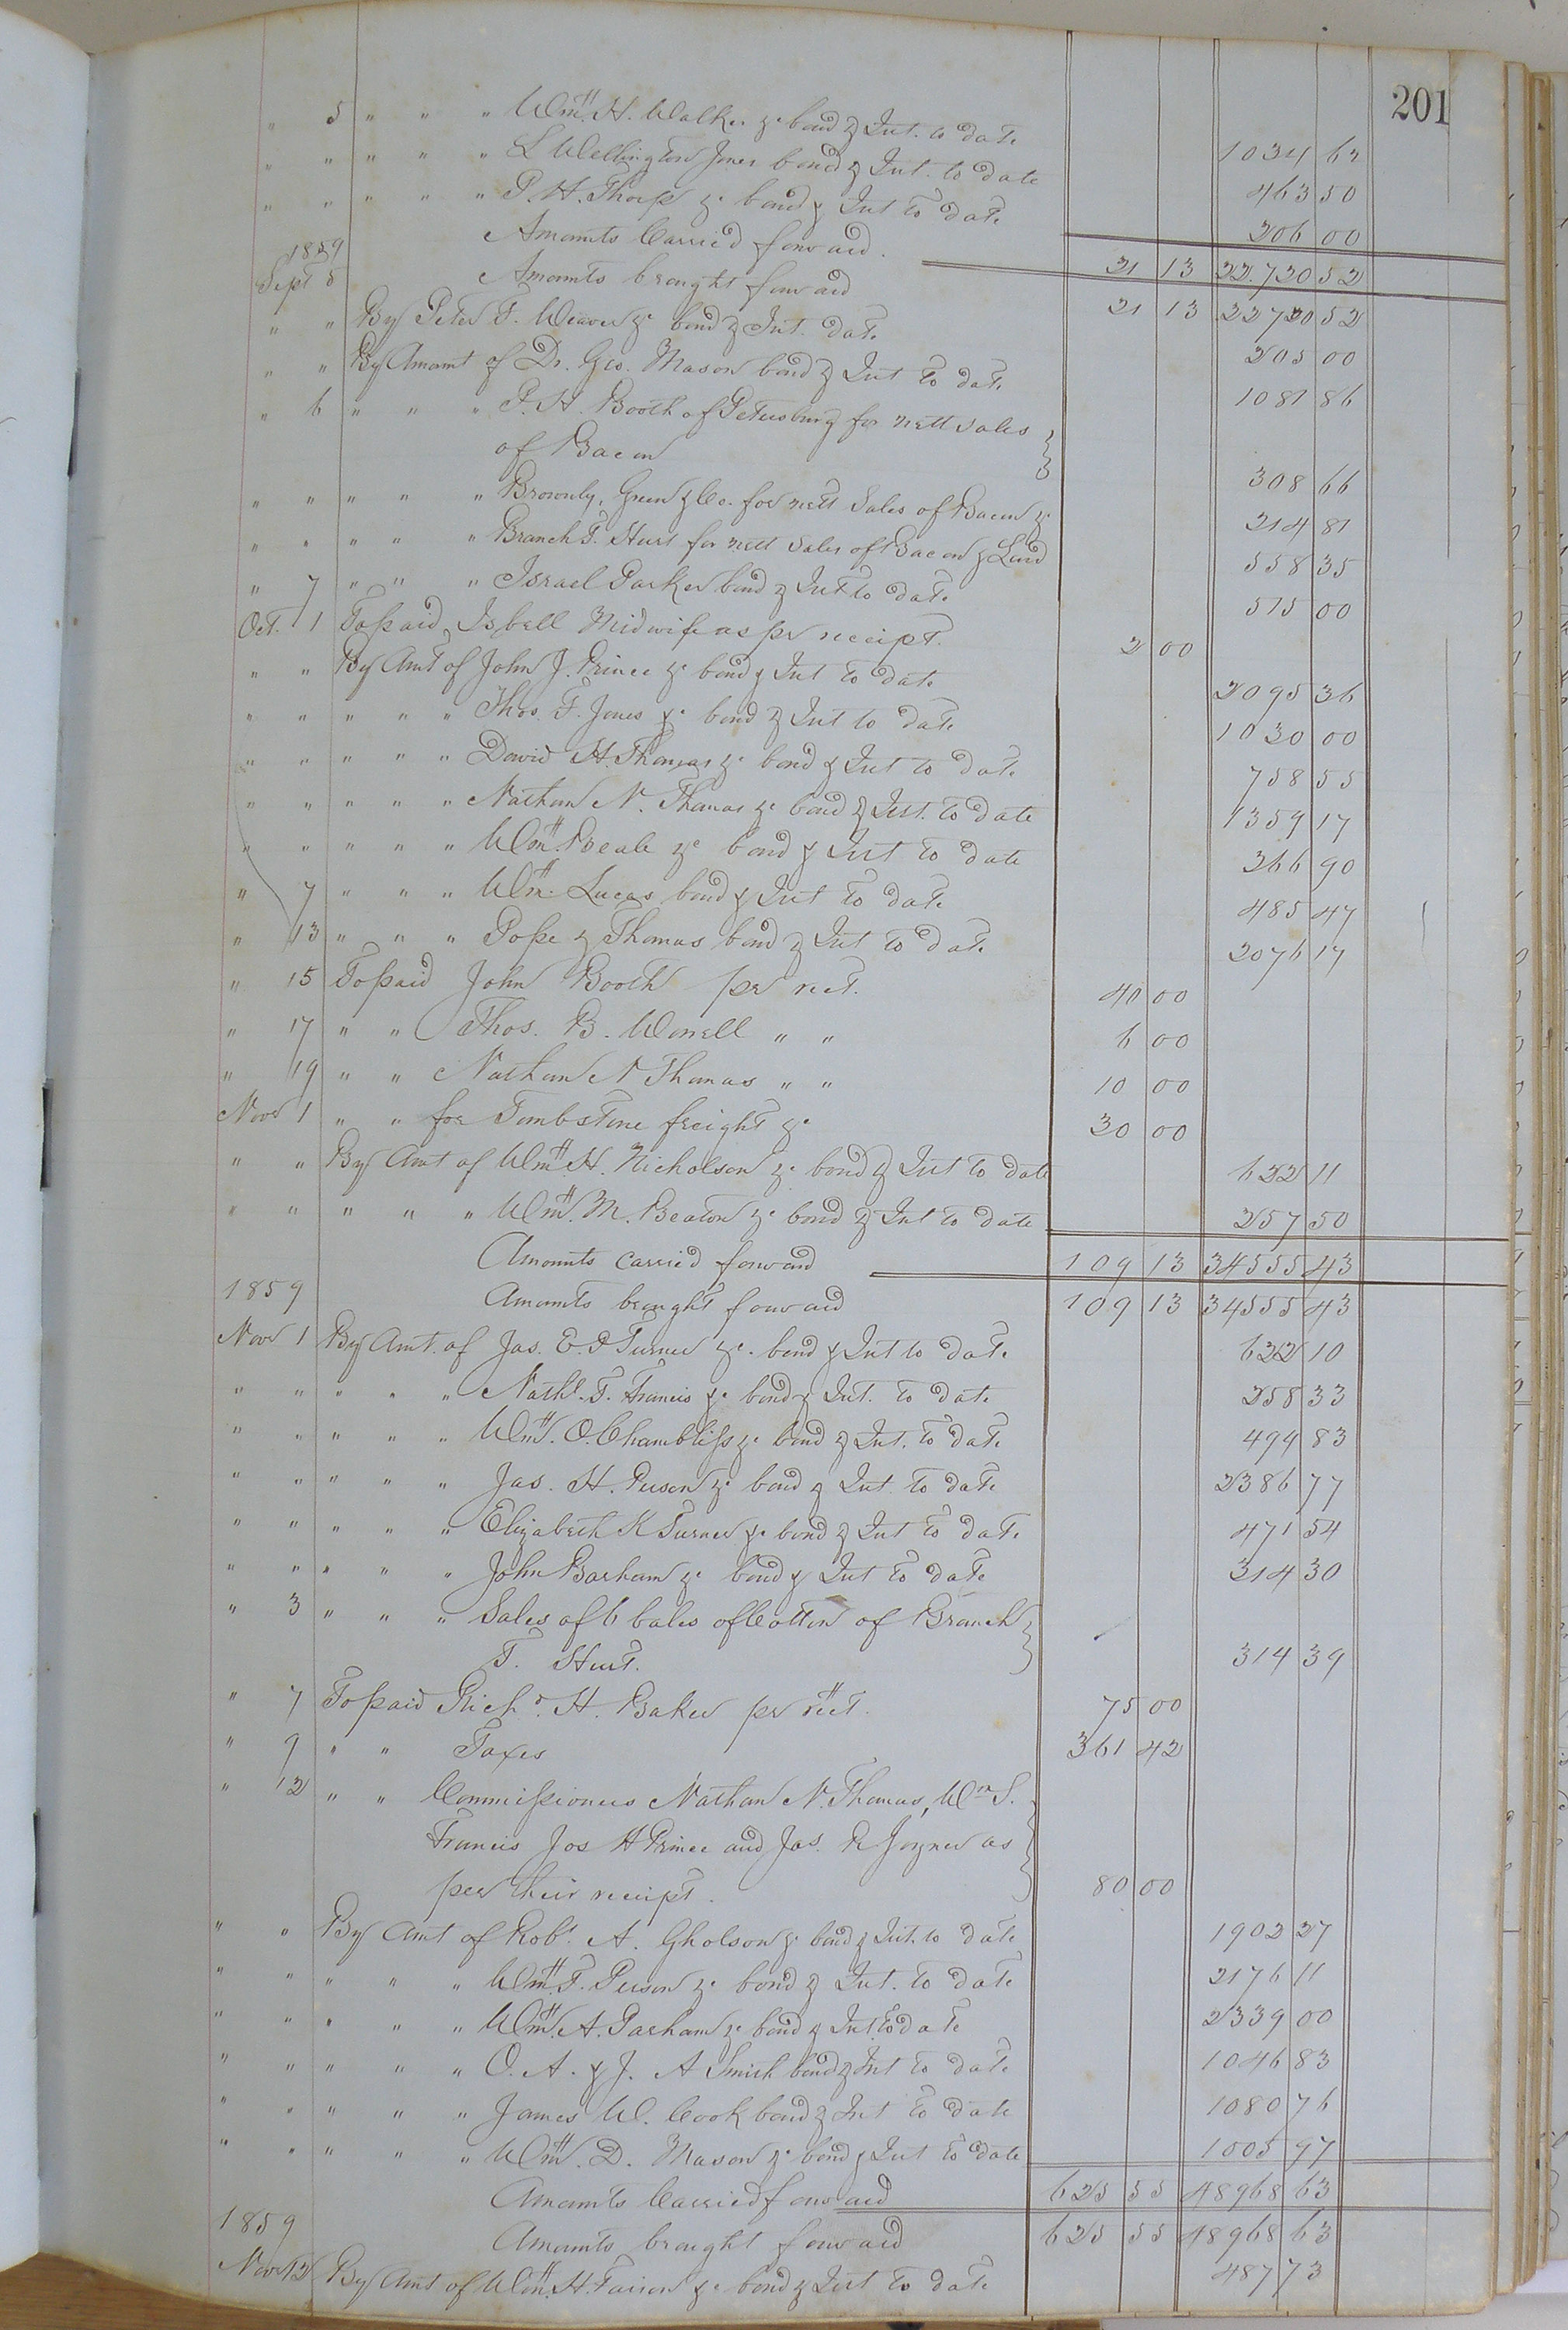 201
" 5 " " " Wm. H. Walker &c bond & Int. to date 1034 62
" " " " " L Wellington Jones bond & Int. to date 463 50
" " " " " P. H. Thorp &c bond & Int to date 206 00
Amounts Carried forward. 21 13 22.720 52
1859
Sept 5 Amounts brought forward 21 13 22720 52
" " By Peter T. Weaver &c bond & Int. date 205 00
" " By Amount of Dr. Geo. Mason bond & Int to date 1081 86
" 6 " " " P. H. Booth of Petersburg for nett sales
of Bacon 308 66
" " " " " Brownly, Green & Co. for nett Sales of Bacon &c 214 81
" " " " " Branch T. Hurt for nett Sales of Bacon & Lard 558 35
" 7 " " " Israel Parker bond & Int to date 515 00
Oct. 1 To paid Isbell Midwife as pr receipt. 2 00
" " By Amt of John J. Prince &c bond & Int to date 2095 36
" " " " " Thos. F. Jones &c bond & Int to date 1030 00
" " " " " David H. Thomas &c bond & Int to date 758 55
" " " " " Nathan N. Thomas &c bond & Int. to date 1359 17
" " " " " Wm. Beale &c bond & Int to date 366 90
" 7 " " " Wm. Lucas bond & Int to date 485 47
" 13 " " " Pope & Thomas bond & Int to date 2076 17
" 15 To paid John Booth pr rect. 40 00
" 17 " " Thos. B. Worrell " " 6 00
" 19 " " Nathan N Thomas " " 10 00
Novr 1 " " for Tombstone freight &c 30 00
" " By Amt of Wm. H. Nicholson &c bond & Int to date 622 11
" " " " " Wm. M. Beaton &c bond & Int to date 257 50
Amounts carried forward 109 13 34555 43
1859 Amounts brought forward 109 13 34555 43
Novr 1 By Amt. of Jas. E. P Turner &c. bond & Int to date 622 10
" " " " " Nathl. T. Francis &c bond & Int. to date 258 33
" " " " " Wm. O. Chambliss &c bond & Int. to date 499 83
" " " " " Jas. H. Person &c bond & Int. to date 2386 77
" " " " " Elizabeth K Turner &c bond & Int to date 471 54
" " " " " John Barham &c bond & Int to date 314 30
" 3 " " " Sales of 6 bales of Cotton of Branch
T. Hurt. 314 39
" 7 To paid Richd. H. Baker pr rect. 75 00
" 9 " " Taxes 361 42
" 12 " " Commissioners Nathan N. Thomas, Wm S.
Francis Jos H Prince and Jas. R Joyner as
per their receipt. 80 00
" " By Amt of Robt. A. Gholson &c bond & Int. to date 1902 27
" " " " " Wm. T. Person &c bond & Int. to date 2176 11
" " " " " Wm. A. Parham &c bond & Int. to date 2339 00
" " " " " O. A. & J. A Smith bond & Int to date 1046 83
" " " " " James W. Cook bond & Int to date 1080 76
" " " " " Wm. D. Mason &c bond & Int to date 1005 97
Amounts Carried forward 625 55 48968 63
1859 Amounts brought forward 625 55 48968 63
Novr 12 By Amt of Wm. H. Faison &c bond & Int to date 487 73